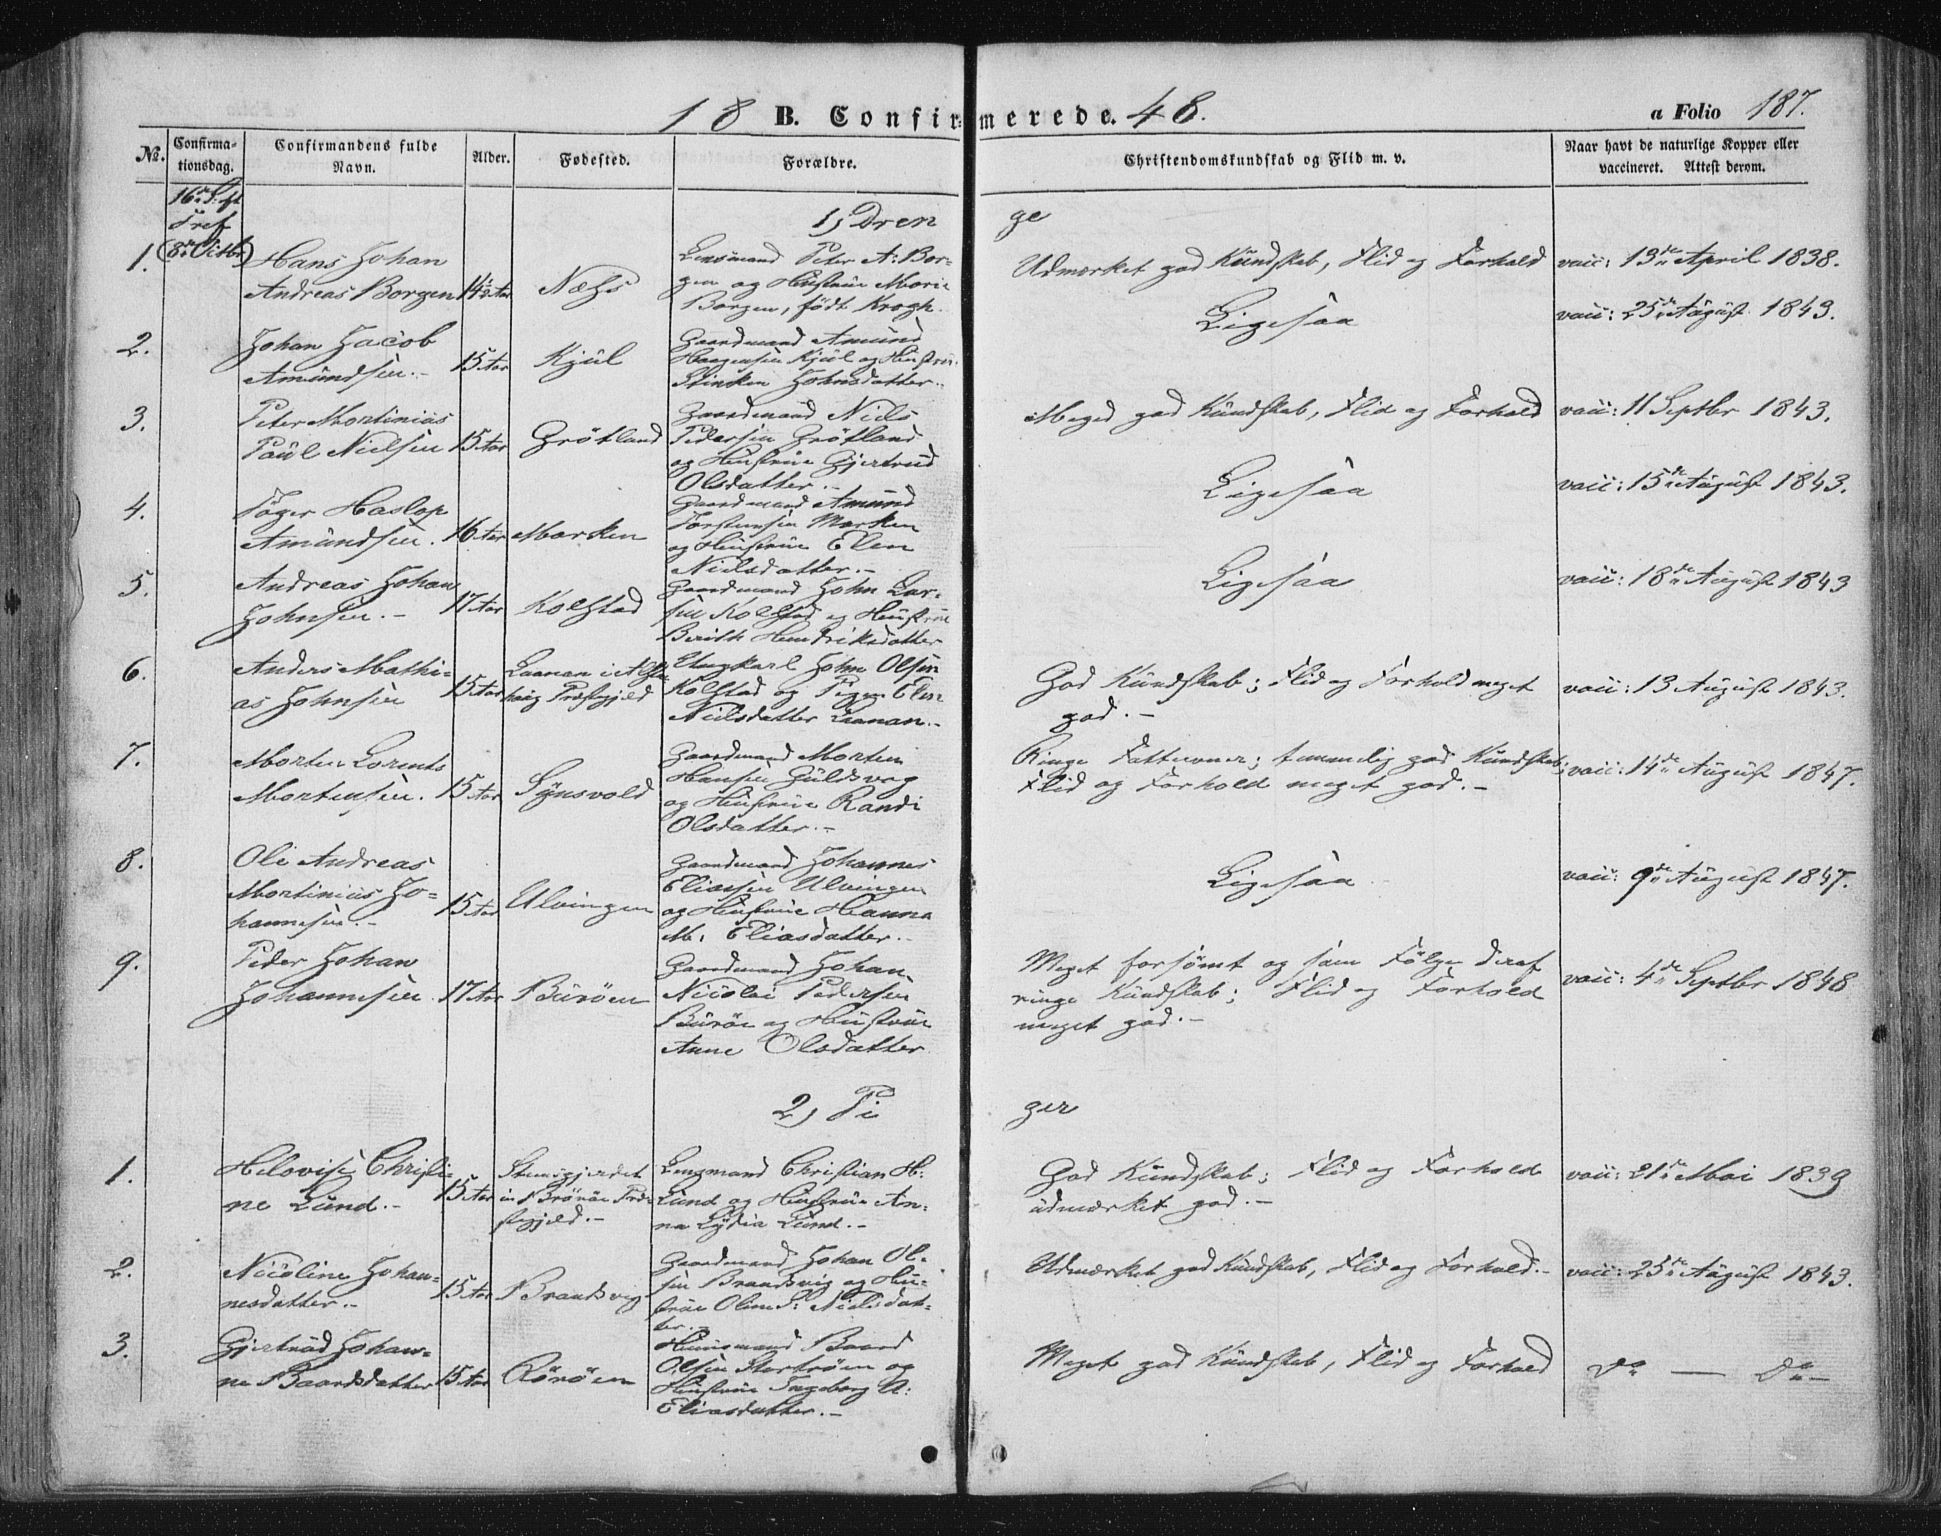 18 B. Confirmerede. 48.
a Folio 187.
No. Confirmationsdag. Confirmandens fulde Navn. Alder. Fødested. Forældre. Christendomskundskab og Flid m. v. Naar havt de naturlige Kopper eller vaccineret. Attest derom.
16de S. ft
Tref
(8de Octbr)
1) Dren ge
1. Hans Johan
Andreas Borgen 14½ Aar Næss
Lensmand Peter A: Bor-
gen og Hustrue Marie
Borgen, født Krogh.
Udmærket god Kundskab, Flid og Forhold vacc: 13de April 1838.
2. Johan Jacob
Amundsen.- 15 Aar Kjül
Gaardmand Amund
Haagensen Kjül og Hustrue
Stinken Johnsdatter.-
Ligesaa vacc: 25de August 1843.
3. Peter Mortinius
Paul Nielsen 15 Aar Grötland
Gaardmand Niels
Pedersen Grötland
og Hustrue Gjertrud
Olsdatter.-
Meged god Kundskab, Flid og Forhold vacc: 11 Septbr 1843.
4. Töger Haslop
Amundsen. 16 Aar Marken
Gaardmand Amund
Torstensen Marken
og Hustrue Elen
Nielsdatter.-
Ligesaa vacc: 15de August 1843.
5. Andreas Johan
Johnsen.- 17 Aar Kolstad
Gaardmand John Lar-
sen Kolstad og Hustrue
Berith Hendriksdatter
Ligesaa vacc: 18de August 1843
6. Anders Mathi-
as Johnsen 15 Aar Laanan i Alsta-
haug Præstgjeld
Ungkarl John Olsen
Kolstad og Pigen Elen
Nielsdatter Laanan.-
God Kundskab; Flid og Forhold meget
god.- vacc: 13 August 1843.
7. Morten Lorents
Mortensen. 15 Aar Synsvold
Gaardmand Morten
Hansen Guldsvog
og Hustrue Randi
Olsdatter.-
Ringe Fatteevner; temmelig god Kundskab;
Flid og Forhold meget god.- vacc: 14de August 1847.
8. Ole Andreas
Mortinius Jo-
hannesen.- 15 Aar Ulvingen
Gaardmand Johannes
Eliassen Ulvingen
og Hustrue Hanna
M: Eliasdatter.-
Ligesaa vacc: 9de August 1847.
9. Peder Johan
Johannesen 17 Aar Buröen
Gaardmand Johan
Nicolai Pedersen
Buröe og Hustrue
Anne Olsdatter
Meget forsömt og som Fölge deraf
ringe Kundskab; Flid og Forhold
meget god.- vacc: 4de Septbr 1848
2) Pi ger
1. Helovise Christi-
ne Lund.- 15 Aar Stensgjerdet
i Brönöe Præ-
stegjeld.-
Lensmand Christian H:
Lund og Hustrue An-
na Lydia Lund.-
God Kundskab; Flid og Forhold
udmærket god.- vacc: 21de Mai 1839
2. Nicoline Johan-
nesdatter.- 15 Aar Brandsvig
Gaardmand Johan Ol-
sen Brandsvig og Hu-
strue Oline P: Nielsdat-
ter.-
Udmærket god Kundskab, Flid og Forhold.- vacc: 25de August 1843.
3. Gjertrud Johan-
ne Baardsdatter 15 Aar Röröen
Huusmand Baard
Olsen Storröen og
Hustrue Ingeborg A:
Eliasdatter.-
Meget god Kundskab, Flid og Forhold do — do-